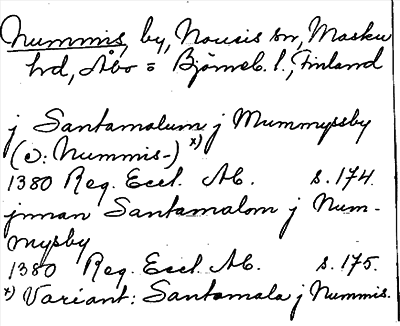 Nummis, by, Nousis sn, Masku
hd, Åbo = Björneb. l., Finland
j Santamalum j Mummyssby
(ɔ: Nummis-) x)
1380 Reg. Eccl. Ab. s. 174.
jnnan Santamalom j Num-
mysby
1380 Reg. Eccl. Ab. s. 175.
x) Variant: Santamala j Nummis.